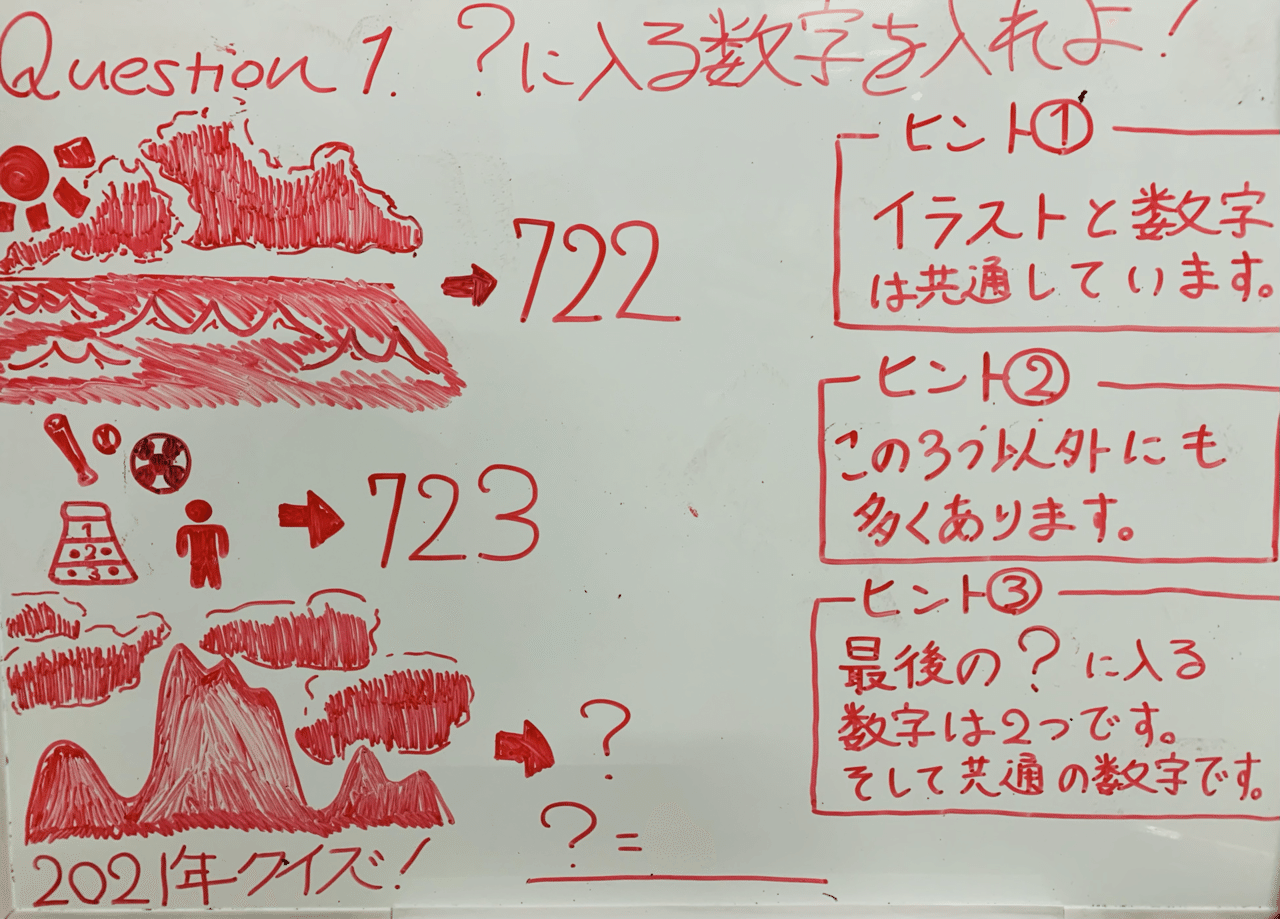 Question 1. ?に入る数字を入れよ!
722
1
2
3
723
?
? =
2021年クイズ!
ヒント①
イラストと数字
は共通しています。
ヒント②
この3つ以外にも
多くあります。
ヒント③
最後の?に入る
数字は2つです。
そして共通の数字です。